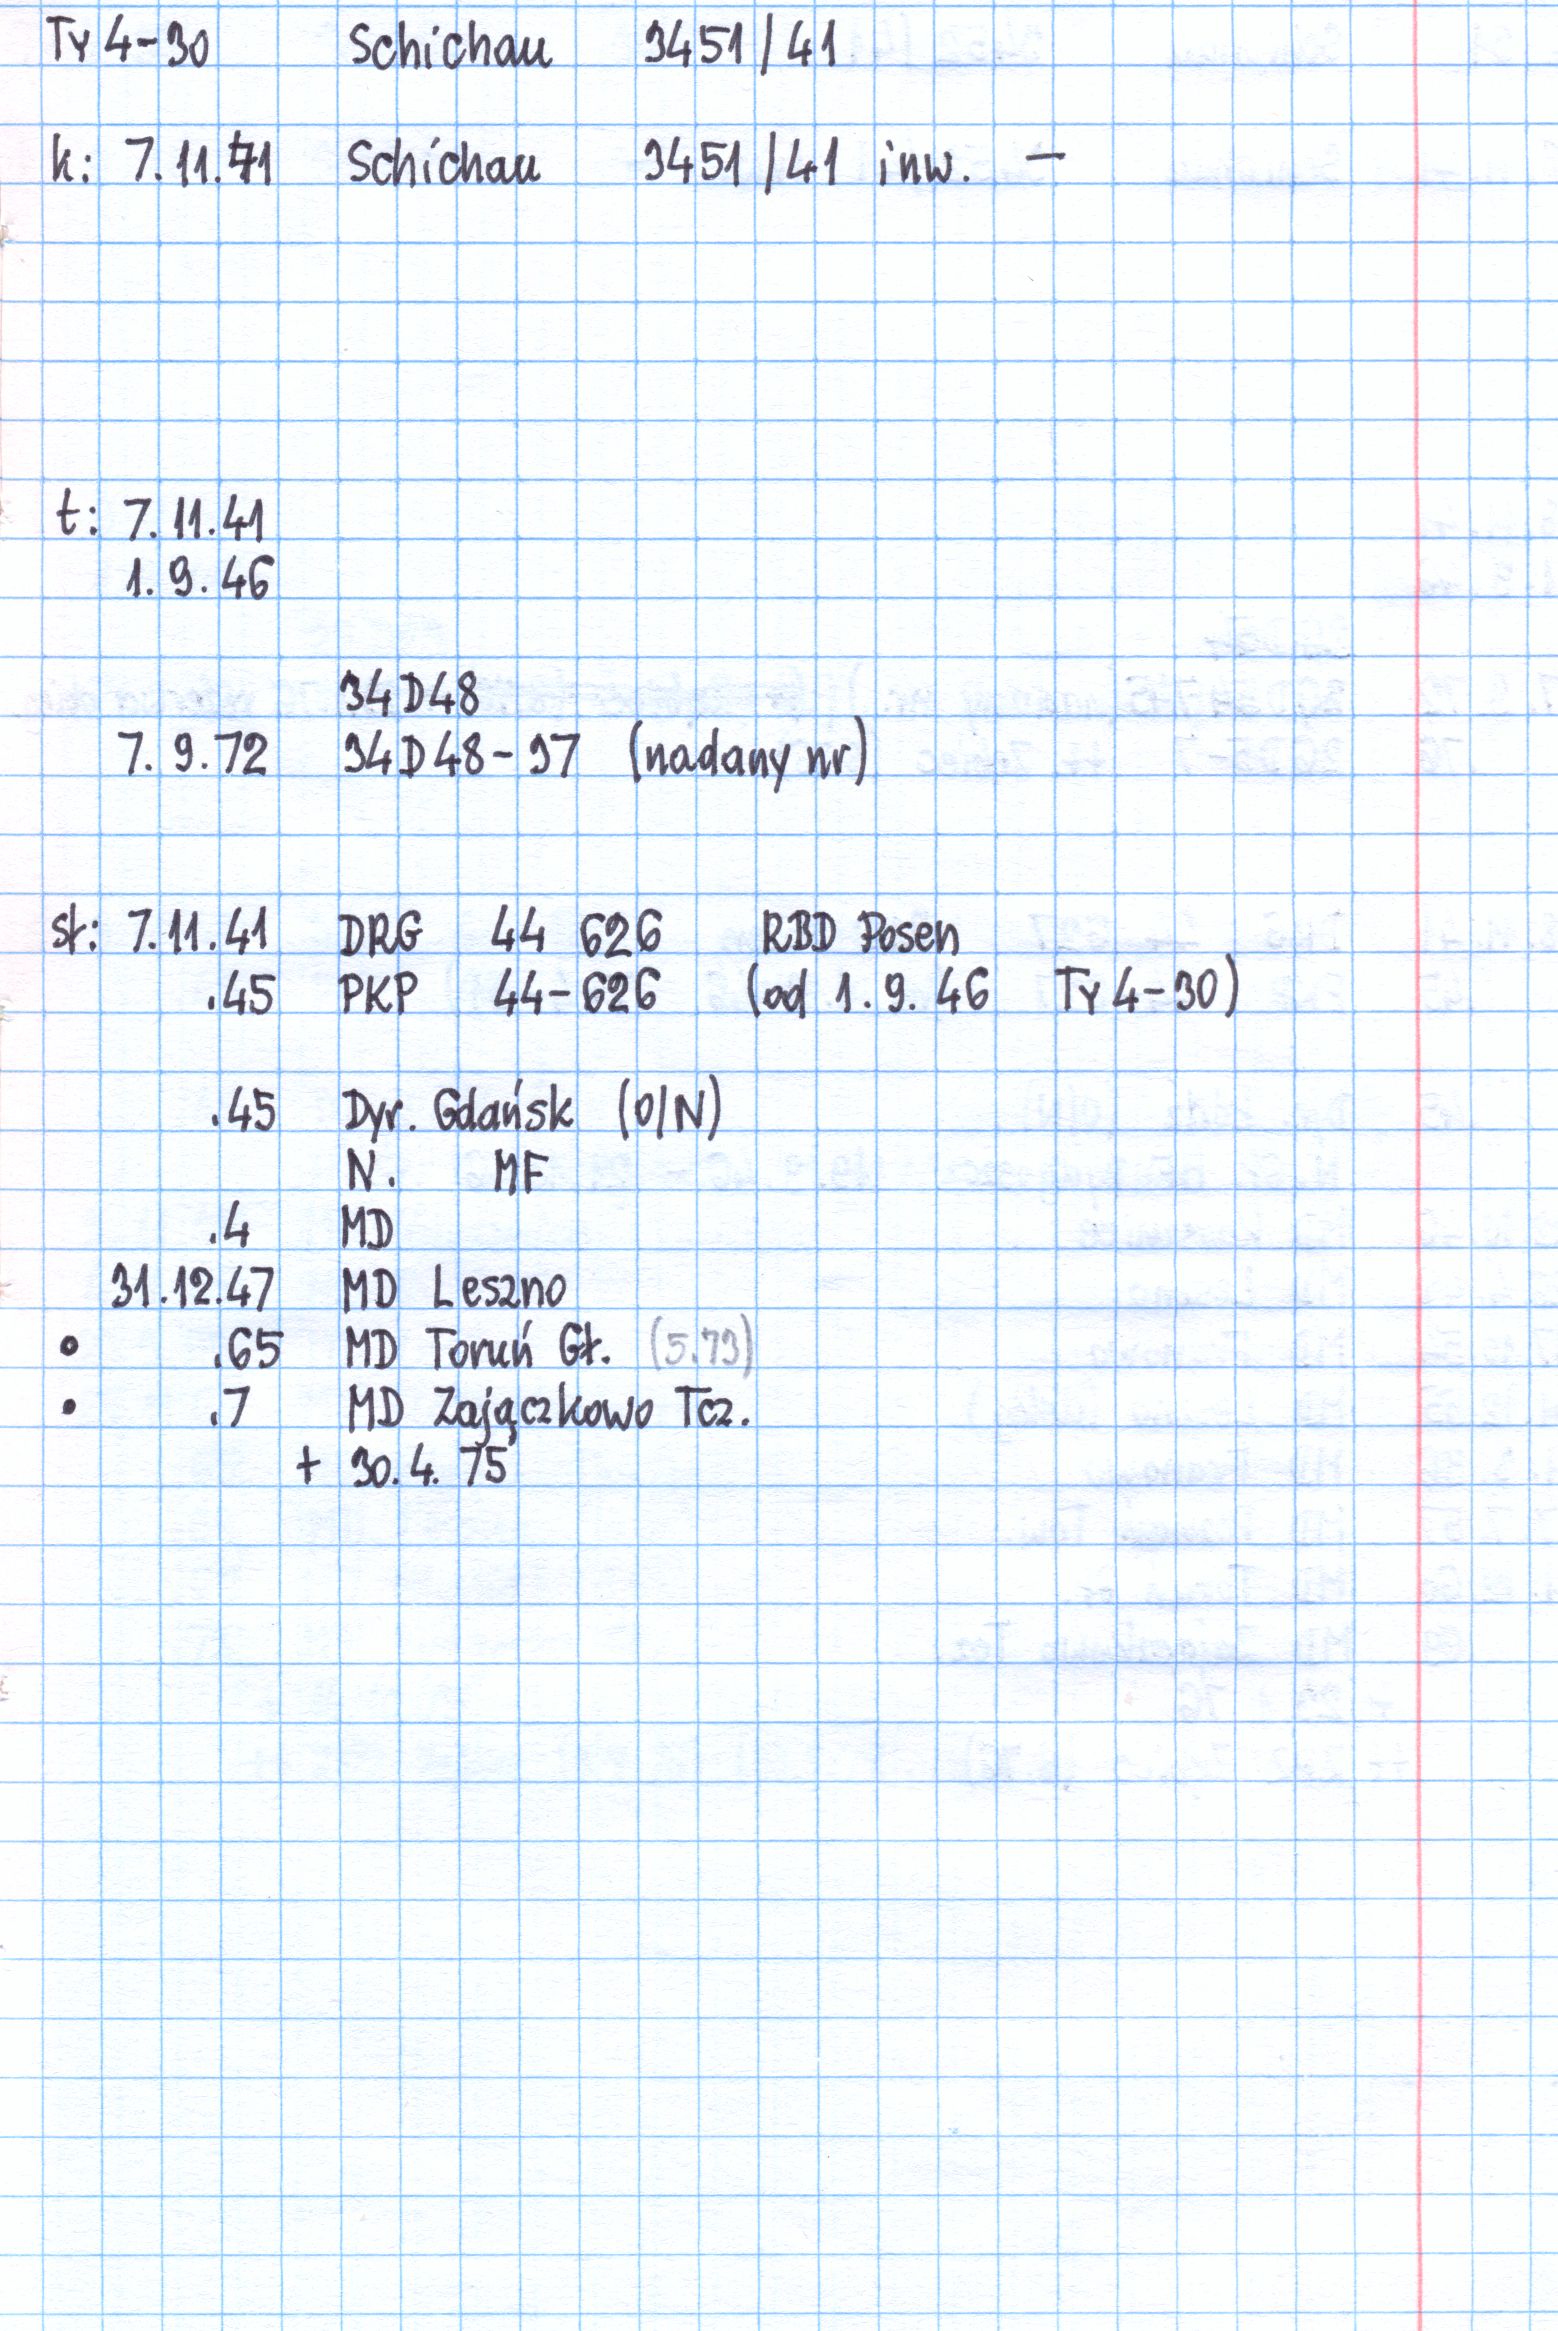 Ty 4-30 Schichau 3451/41
k: 7.11.41 Schichau 3451/41 inw. —
t: 7.11.41
1.9.46
34D48
7.9.72 34D48-97 (nadany nr)
st: 7.11.41 DRG 44 626 RBD Posen
.45 PKP 44-626 (od 1.9.46 Ty 4-30)
.45 Dyr. Gdańsk (O/N)
N. MF
.4 MD
31.12.47 MD Leszno
• .65 MD Toruń Gł. (5.73)
• .7 MD Zajączkowo Tcz.
+ 30.4.75